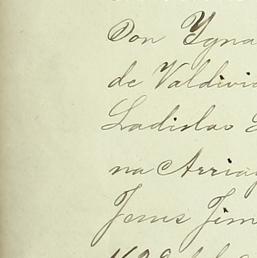 Don Ygna
de Valdivia
Ladislao
na Arria
Jesus Jim